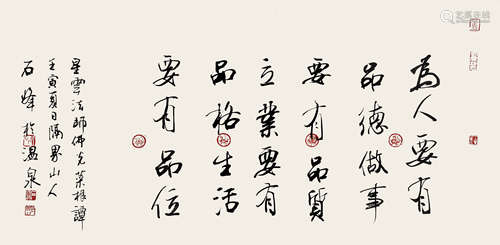 為人要有
品德做事
要有品質
立業要有
品格生活
要有品位
星雲法師佛光菜根譚
壬寅夏日隔界山人
石峰於温泉